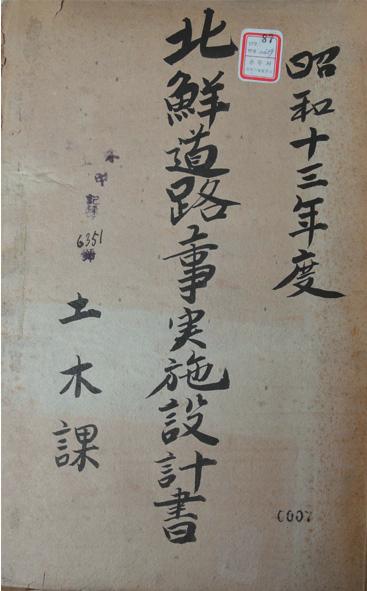 昭和十三年度
87
北鮮道路工事実施設計書
記録
6351
土木課
0007